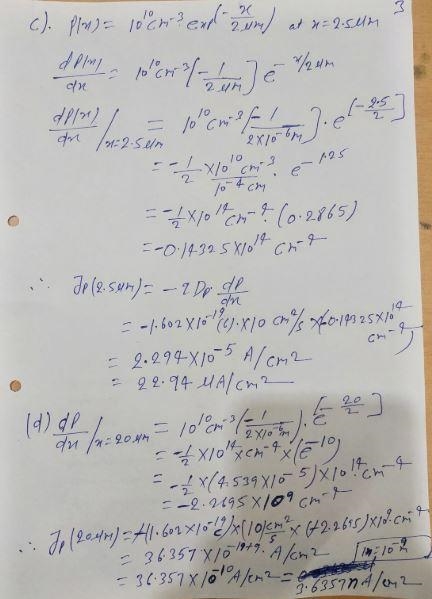 3
c). P(x) = 10^10 cm^-3 exp(-x/2μm) at x=2.5μm
dP(x)/dx = 10^10 cm^-3 (-1/2μm) e^-x/2μm
dP(x)/dx /x=2.5μm = 10^10 cm^-3 (-1/2×10^-6m) . e^[-2.5/2]
= -1/2 × 10^10 cm^-3/10^-4 cm . e^-1.25
= -1/2 × 10^14 cm^-4 . (0.2865)
= -0.14325 × 10^14 cm^-4
∴ Jp(2.5μm) = -q Dp . dP/dx
= -1.602×10^-19 (c) . × 10 cm^2/s × (-0.14325×10^14 cm^-4)
= 2.294×10^-5 A/cm2
= 22.94 μA/cm2
(d) dP/dx /x=20μm = 10^10 cm^-3 (-1/2×10^-6m) . [e^-20/2]
= -1/2 × 10^14 × cm^-4 × (e^-10)
= -1/2 × (4.539×10^-5) × 10^14 . cm^-4
= -2.2695 × 10^9 cm^-4
∴ Jp(20μm) = +(1.602×10^-19 c) × (10) cm^2/s × (+2.2695) × 10^9 . cm^-4
= 36.357 × 10^-19+9 . A/cm2
n=10^-9
= 36.357 × 10^-10 A/cm2 = 3.6357 nA/cm2